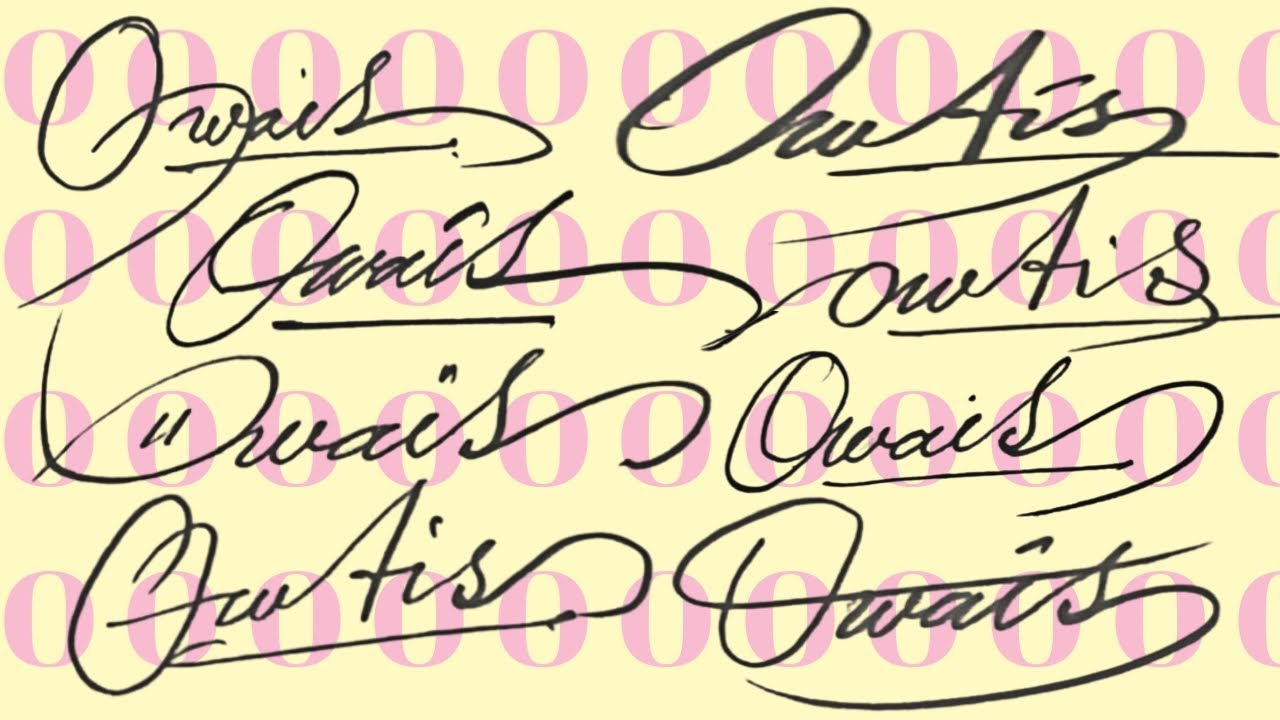 O O O O O O O O O O O
Owais OwAis
O O O O O O O O O O O
Owais owAis
O O O O O O O O O O O
"Owais" Owais
O O O O O O O O O O O
OwAis Owais